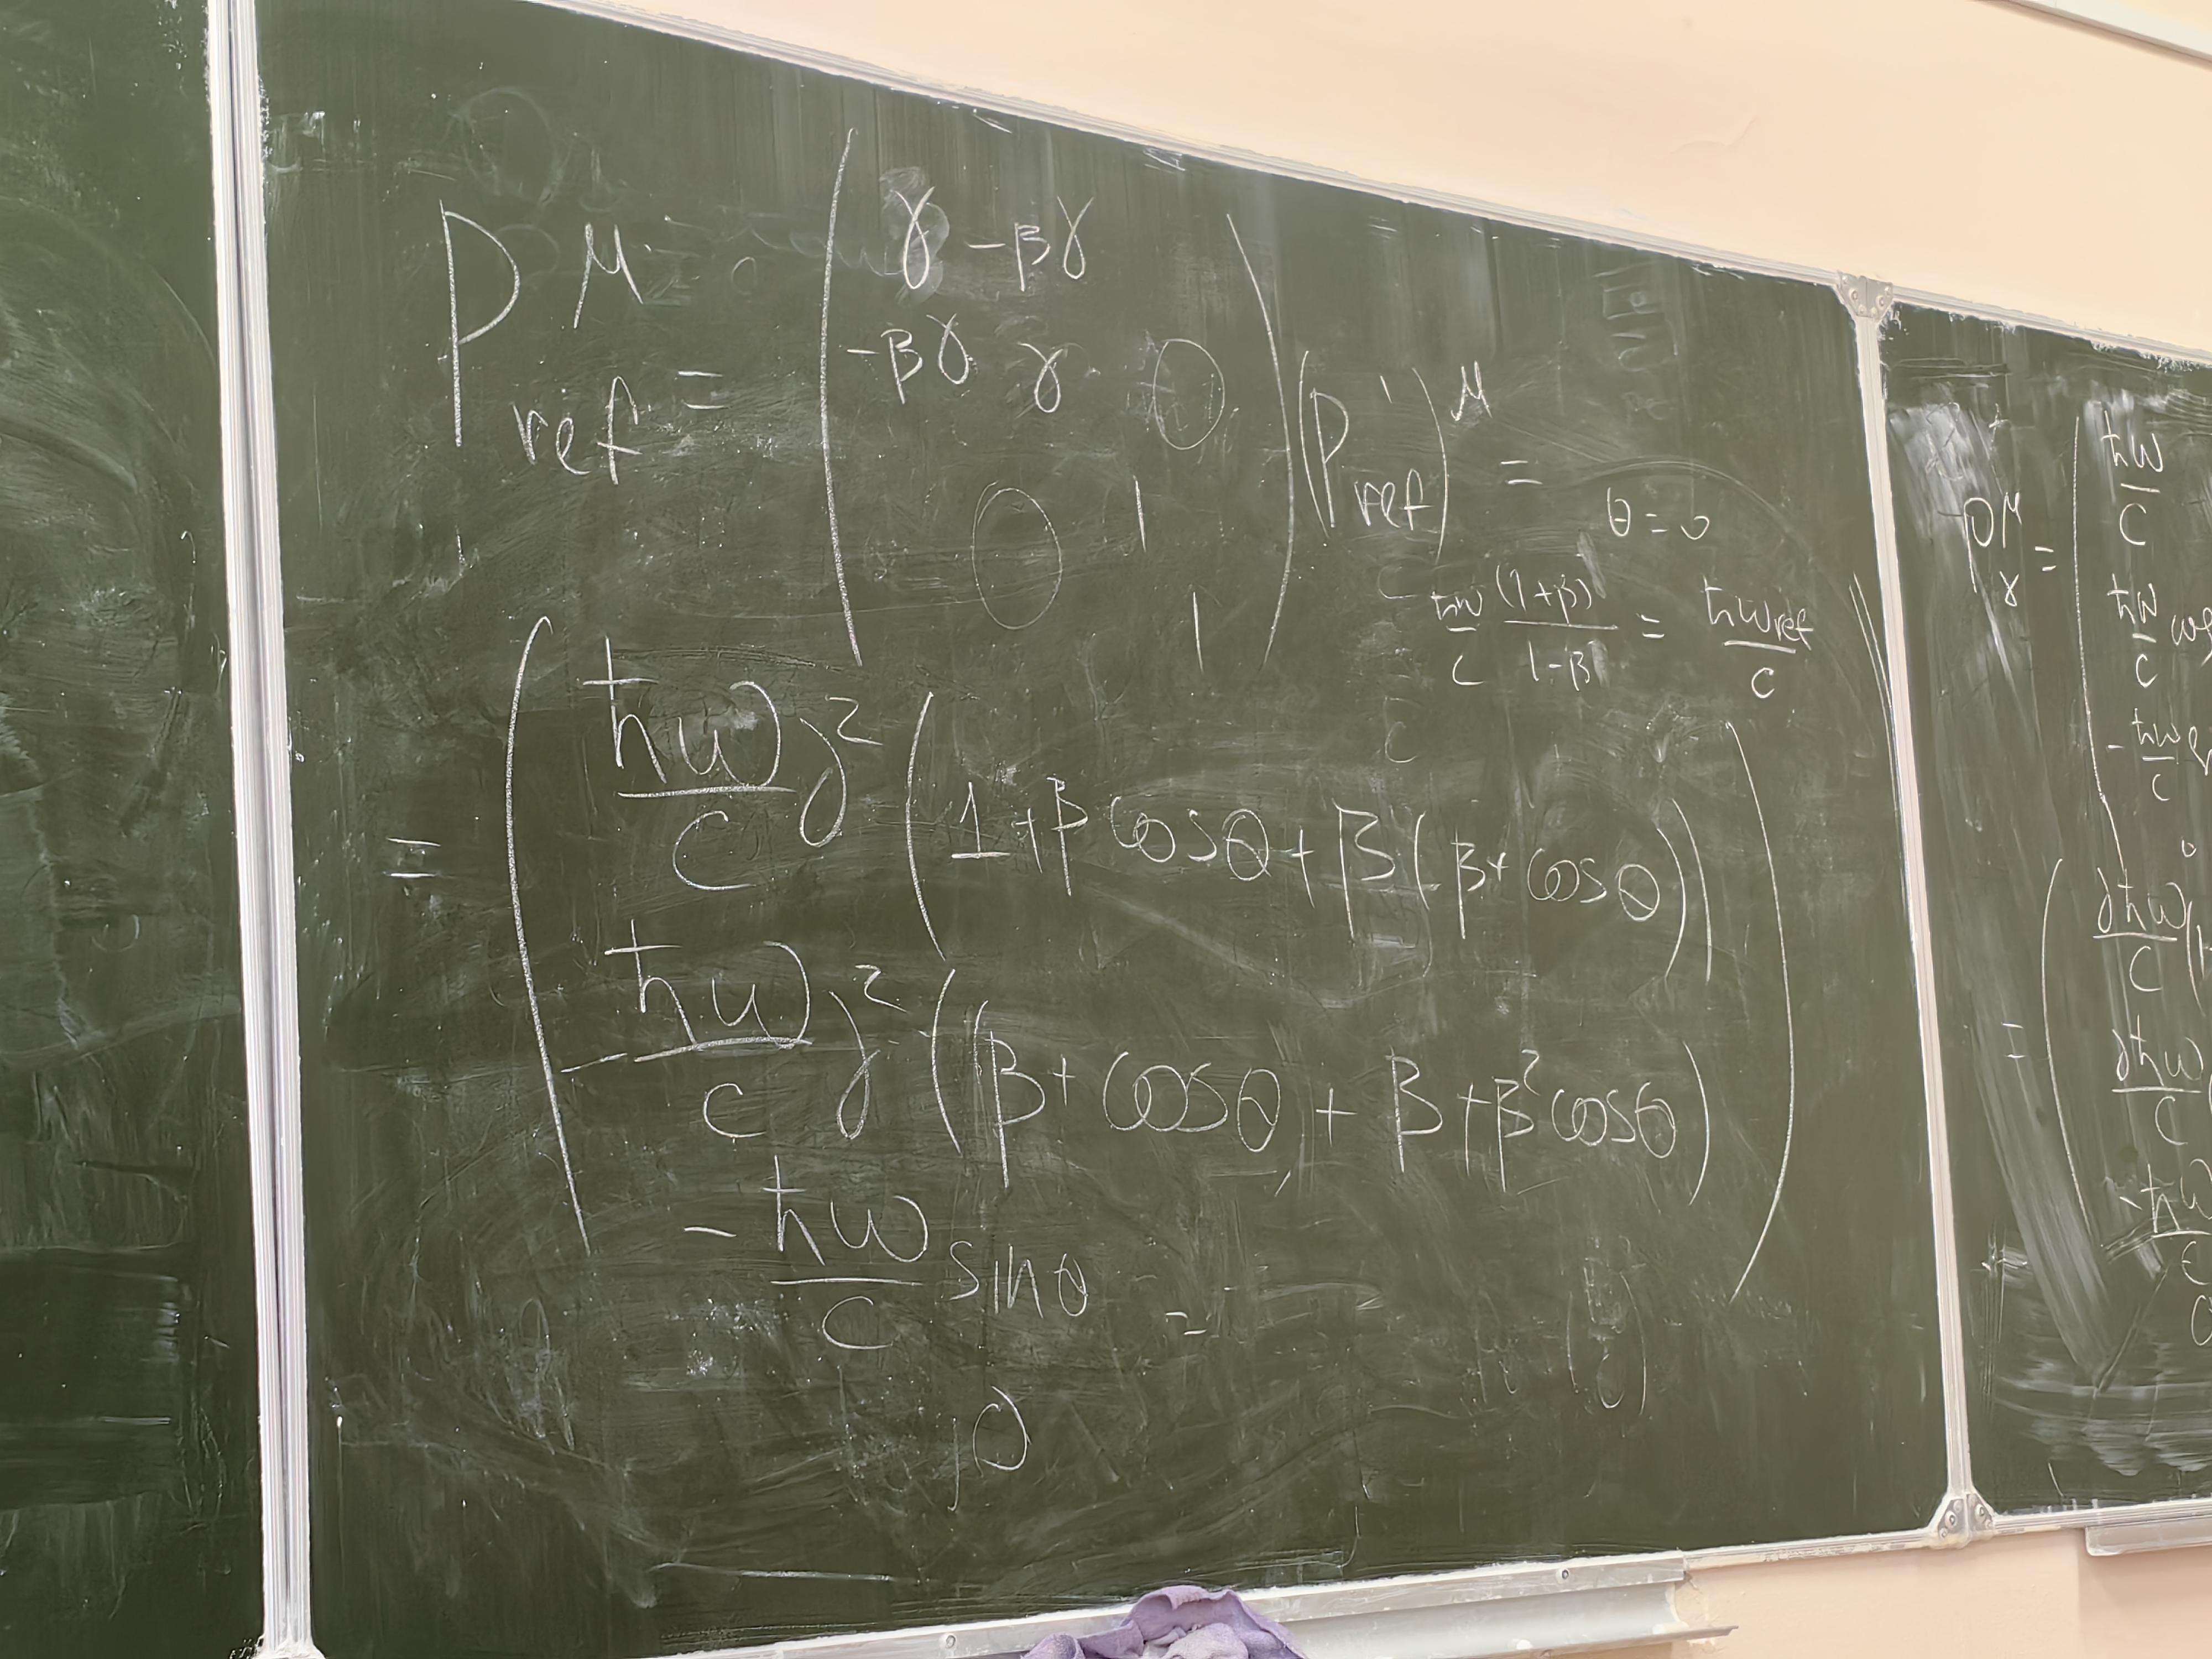 P^μ_ref = ( γ -βγ
-βγ γ 0
0 1
1 ) (P'_ref)^μ =
θ = 0
ħω/c (1+β)/(1-β) = ħω_ref/c
= ( ħω/c γ² (1 + β cosθ + β(β + cosθ))
-ħω/c γ² (β + cosθ + β + β² cosθ)
-ħω/c sinθ
0 )
P^μ_γ = ( ħω/c
ħω/c
-ħω/c
0
= ( γħω/c
γħω/c
-ħω/c